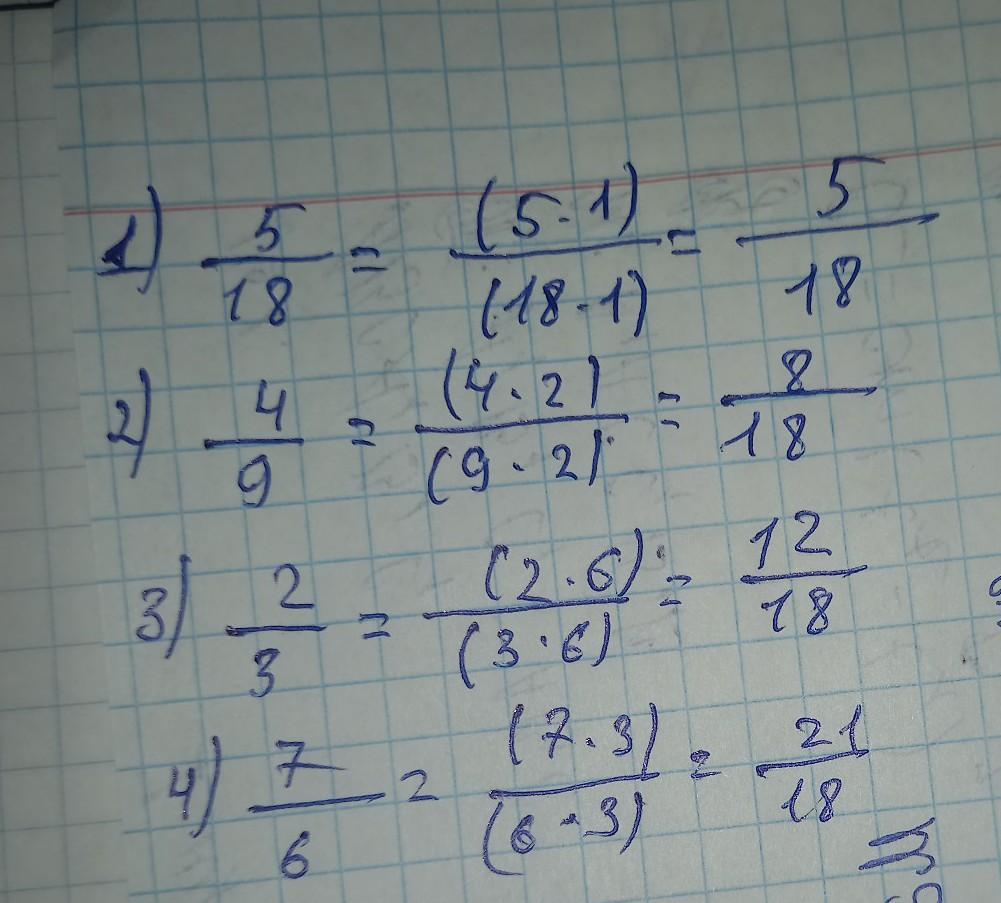 1) 5/18 = (5·1)/(18·1) = 5/18
2) 4/9 = (4·2)/(9·2) = 8/18
3) 2/3 = (2·6)/(3·6) = 12/18
4) 7/6 = (7·3)/(6·3) = 21/18